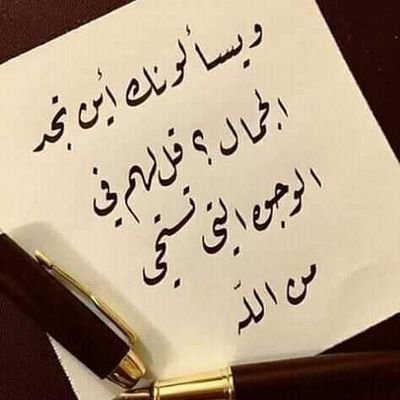 ويسألونك أين تجد
الجمال؟ قل لهم في
الوجوه التي تستحي
من اللّه